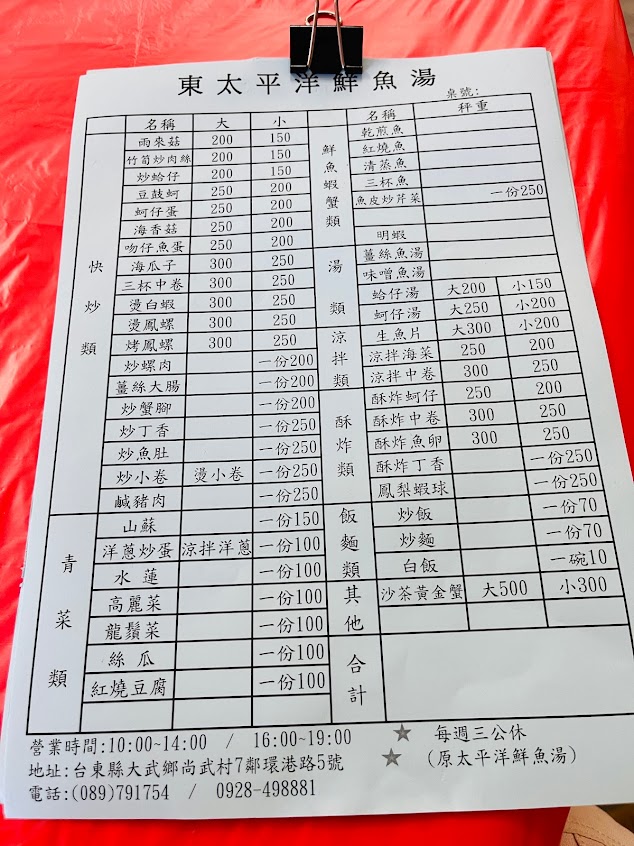 東太平洋鮮魚湯
桌號:
快炒類
名稱 大 小
雨來菇 200 150
竹筍炒肉絲 200 150
炒蛤仔 200 150
豆鼓蚵 250 200
蚵仔蛋 250 200
海香菇 250 200
吻仔魚蛋 250 200
海瓜子 300 250
三杯中卷 300 250
燙白蝦 300 250
燙鳳螺 300 250
烤鳳螺 300 250
炒螺肉 一份200
薑絲大腸 一份200
炒蟹腳 一份200
炒丁香 一份250
炒魚肚 一份250
炒小卷 燙小卷 一份250
鹹豬肉 一份250
青菜類
山蘇 一份150
洋蔥炒蛋 涼拌洋蔥 一份100
水蓮 一份100
高麗菜 一份100
龍鬚菜 一份100
絲瓜 一份100
紅燒豆腐 一份100
鮮魚蝦蟹類
名稱 秤重
乾煎魚
紅燒魚
清蒸魚
三杯魚
魚皮炒芹菜 一份250
明蝦
湯類
薑絲魚湯
味噌魚湯
蛤仔湯 大200 小150
蚵仔湯 大250 小200
涼拌類
生魚片 大300 小200
涼拌海菜 250 200
涼拌中卷 300 250
酥炸類
酥炸蚵仔 250 200
酥炸中卷 300 250
酥炸魚卵 300 250
酥炸丁香 一份250
鳳梨蝦球 一份250
飯麵類
炒飯 一份70
炒麵 一份70
白飯 一碗10
其他
沙茶黃金蟹 大500 小300
合計
營業時間:10:00~14:00 / 16:00~19:00
★ 每週三公休
地址:台東縣大武鄉尚武村7鄰環港路5號
★ (原太平洋鮮魚湯)
電話:(089)791754 / 0928-498881